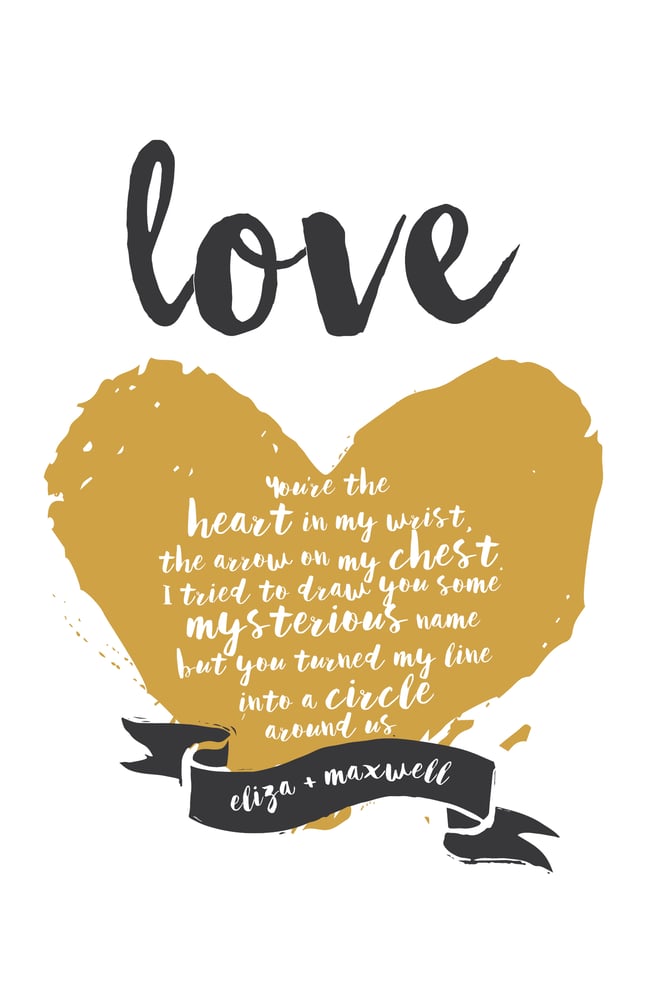 love
You're the
heart in my wrist,
the arrow on my chest.
I tried to draw you some
mysterious name
but you turned my line
into a circle
around us
eliza + maxwell